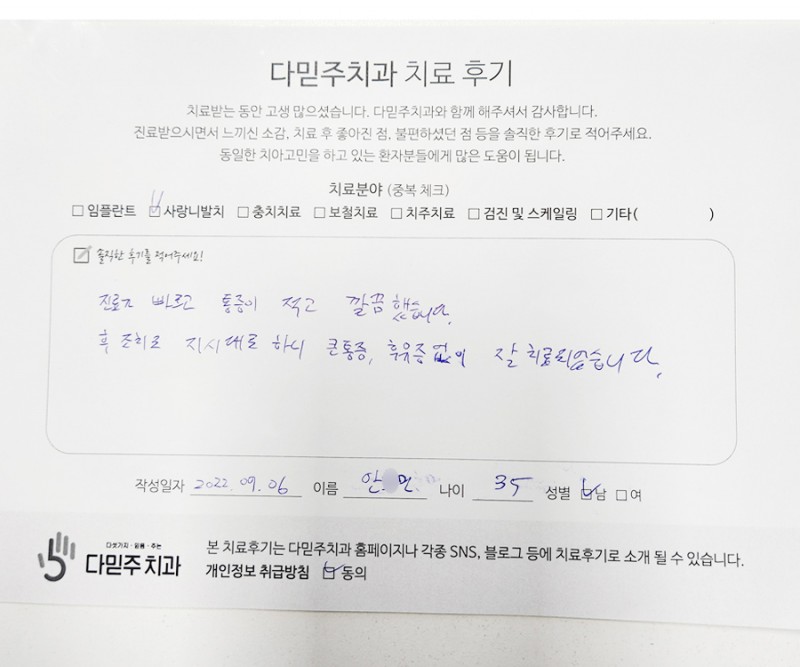 다믿주치과 치료 후기
치료받는 동안 고생 많으셨습니다. 다믿주치과와 함께 해주셔서 감사합니다.
진료받으시면서 느끼신 소감, 치료 후 좋아진 점, 불편하셨던 점 등을 솔직한 후기로 적어주세요.
동일한 치아고민을 하고 있는 환자분들에게 많은 도움이 됩니다.
치료분야 (중복 체크)
☐ 임플란트 ☑ 사랑니발치 ☐ 충치치료 ☐ 보철치료 ☐ 치주치료 ☐ 검진 및 스케일링 ☐ 기타( )
솔직한 후기를 적어주세요!
빠르고 통증이 적고 깔끔했습니다.
후 조치로 지시대로 하니 큰통증, 후유증 없이 잘 치료되었습니다.
작성일자 2022. 09. 06 이름 안 민 나이 35 성별 ☑ 남 ☐ 여
다섯가지·믿음·주는
다믿주치과
본 치료후기는 다믿주치과 홈페이지나 각종 SNS, 블로그 등에 치료후기로 소개 될 수 있습니다.
개인정보 취급방침 ☑ 동의